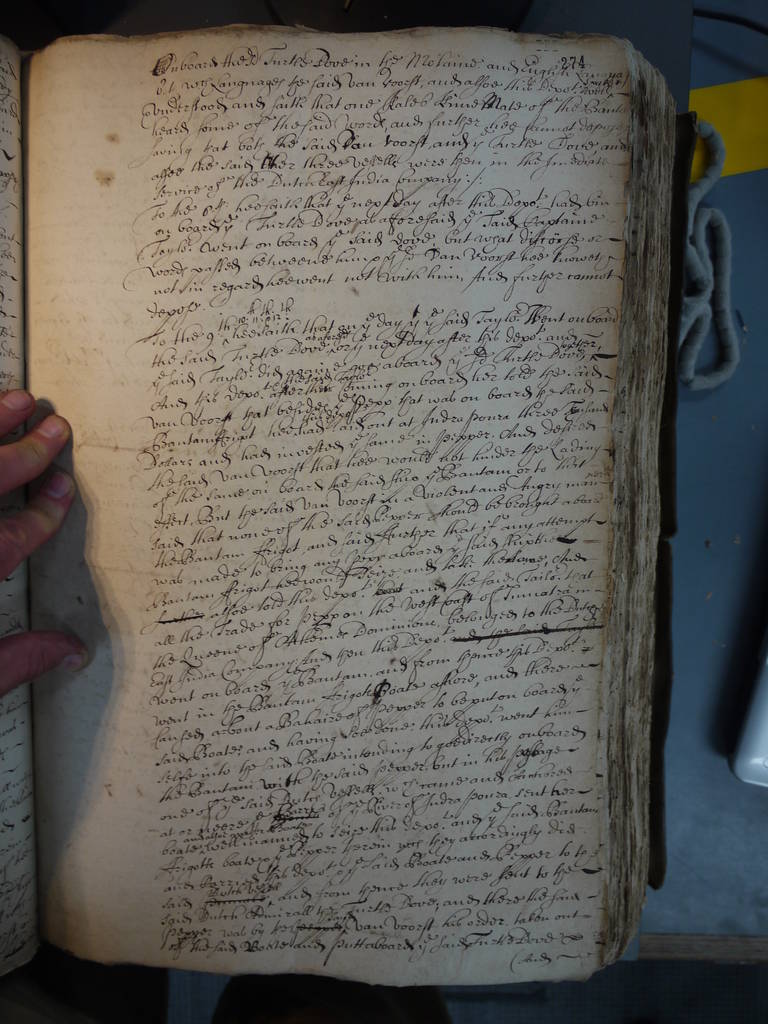 274
Onboard the sd Turtle Dove in the and English
wch Languages he said van Voorst, and alsoe this Depot.
understood, and saith that one Mate of the Bantam
heard some of the said words, and further hee cannot depose
saving that both the said Van Voorst, and ye Turtle Dove and
alsoe the said other three vessells were then in the Imediate
service of the Dutch East India Company ./.
To the 8th. hee saith that ye next day after this Depot. had bin
on board ye Turtle Dove as aforesaid ye said Captaine
Taylor. went on board ye said Dove, but what discorse or
words passed betweene him & ye sd Van Voorst hee knowes
not in regard hee went not with him, And further cannot
depose.
To the 9th 10th 11th 12th hee saith that on ye day ye said Taylor. Went onboard
the said Turtle Dove, or ye next day after this depot. and
ye said Taylor. did againe goe aboard ye sd Turtle Dove,
And this Depot. after the said Taylors coming on board her told the said
van Voorst that besides ye Pepp that was on board the said
Bantam frigot hee had laid out at Indrapoura three thousand
Dollars and had invested ye same in Pepper. And desired
the said van Voorst that hee would not hinder the Lading
of the same on board the said ship ye Bantam or to that
effect. But the said van Voorst in a violent and Angry manner
said that none of the said Pepper should be brought aboard
the Bantam frigot, and said further that if any attempt
was made to bring any Pepp aboard ye said
Bantam frigot hee would seize and take the same, And
alsoe told this depot. and the said Tailor. that
all the Trade for Pepp on the West Coast of Summatra in
the Queene of Dominions belonged to the Dutch
East India Company, And then this Depot.
went on board ye Bantam, and from thence this Depot.
went in the Bantam frigots Boate ashore, and there
caused about a Bahaire of Pepper to be put on board ye
said Boate, and having soe done, this Depot. went him
selfe into the said Boate intending to goe directly on board
the Bantam with the said Pepper, but in his passage
one of ye said Dutch vessells wch came and Anchored
at or neere ye of ye River of Indrapoura sent her
boate well manned to seize this depot. and ye said Bantam
frigotts boate & ye Pepper therein wch they accordingly did
and Carried this depot. & ye said Boate and Pepper to the
said Dutch vessell, and from thence they were sent to the
said Dutch Admirall the Turtle Dove, and there the said
Pepper was by the said van Voorst his order, taken out
of the said Boate and putt aboard ye said Turtle Dove
(And